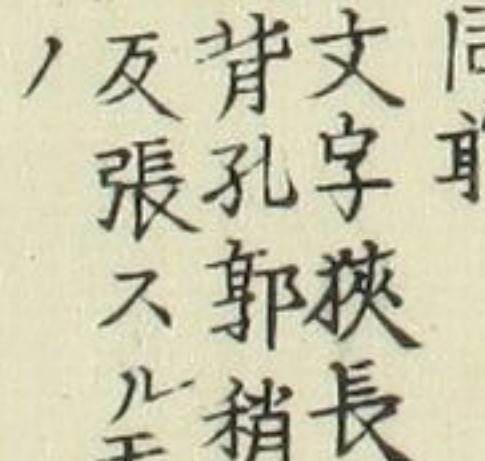 文字狹長
背孔郭稍
反張スルモ
ノ